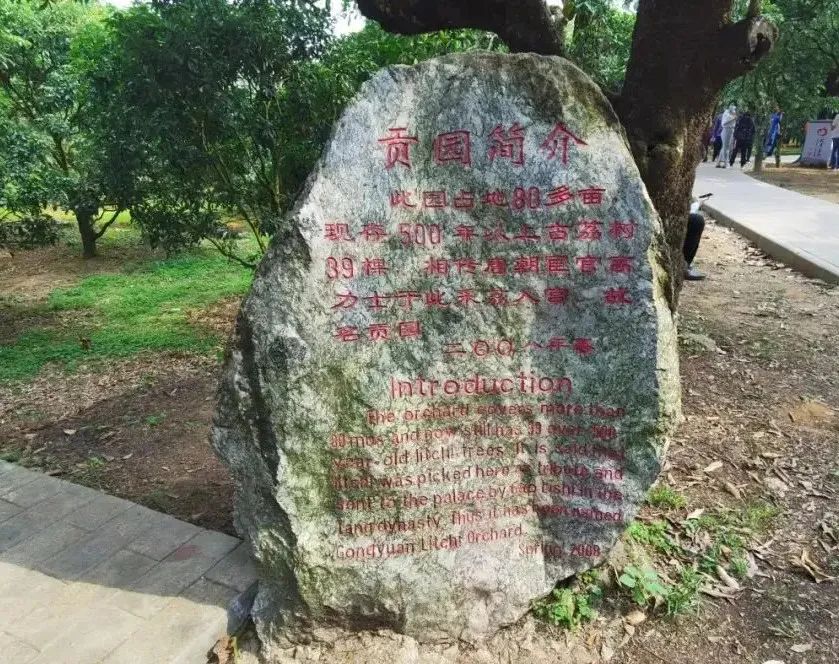 贡园简介
此园占地80多亩
现存500年以上古荔树
39棵 相传唐朝巨官高
力士于此采荔入宫 故
名贡园
二〇〇八年春
Introduction
The orchard covers more than
80 mus and now still has 39 over 500
year-old litchi trees. It is said that
litshi was picked here as tribute and
sent to the palace by Gao Lishi in the
Tang dynasty. Thus it has been named
Gongyuan Litchi Orchard.
Spring, 2008